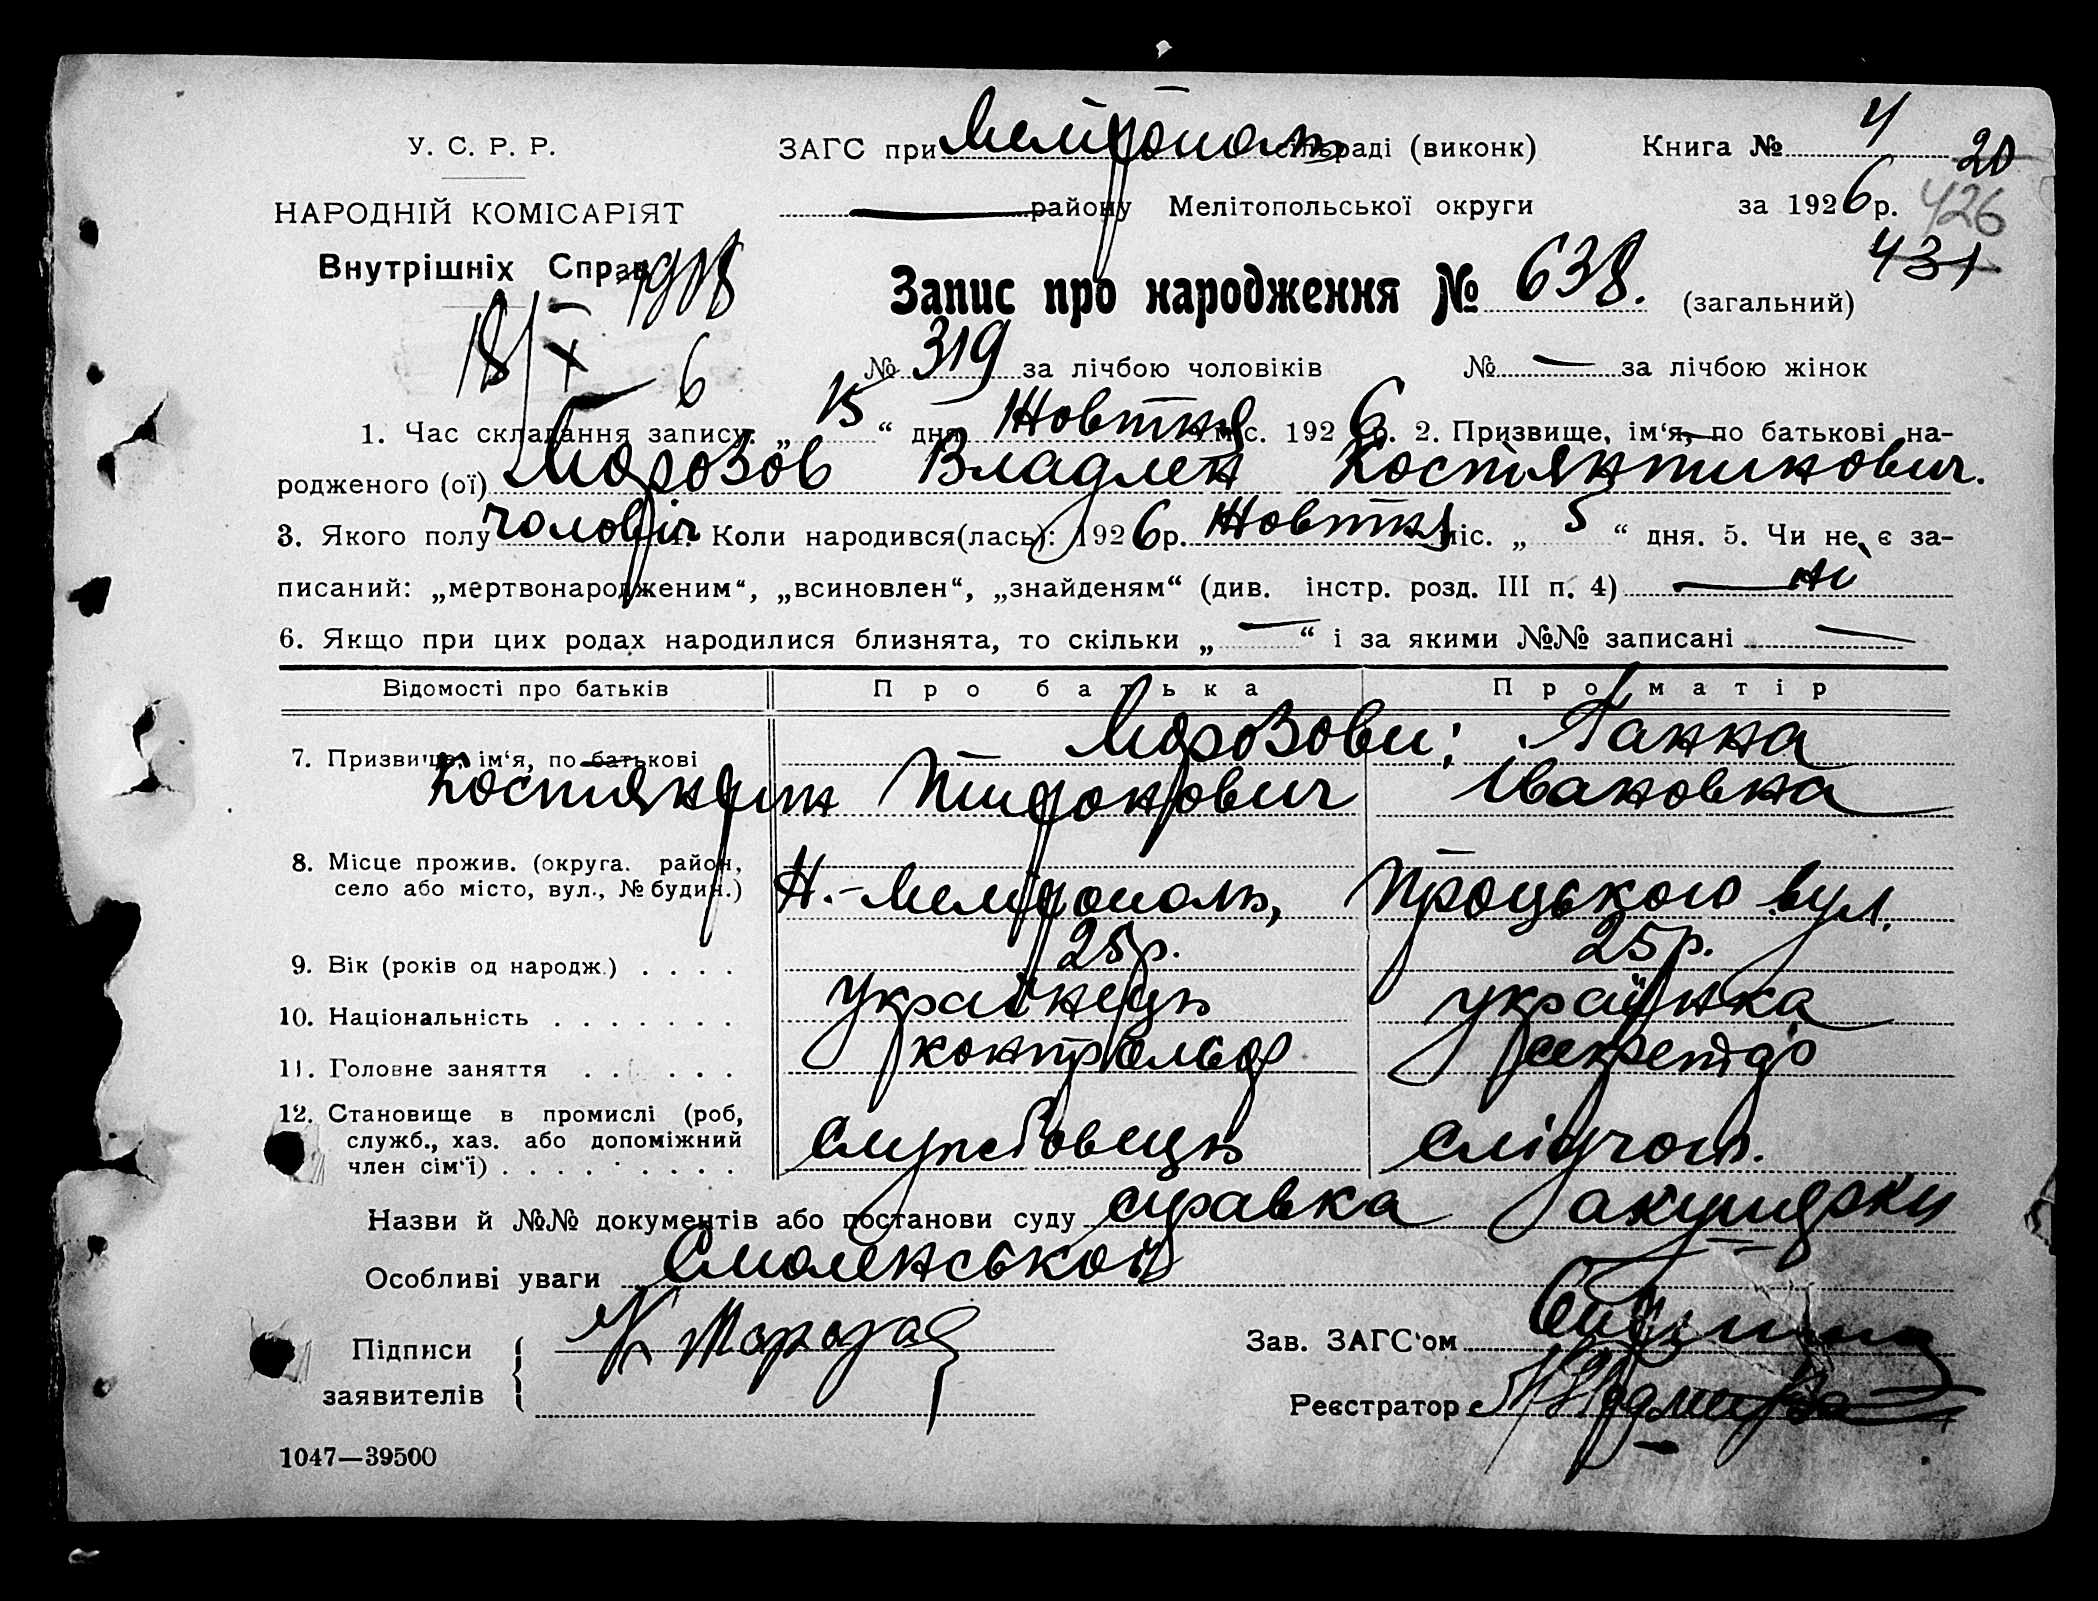 У. С. Р. Р. ЗАГС при Мелітополь сільраді (виконк) Книга № 4 20
НАРОДНІЙ КОМІСАРІЯТ району Мелітопольської округи за 1926 р. 426
Внутрішніх Справ Запис про народження № 638. (загальний) 431
18/X 6 № 319 за лічбою чоловіків № — за лічбою жінок
1. Час складання запису: „ 15 “ дня Жовтня міс. 1926 р. 2. Призвище, ім‘я, по батькові на-
родженого (ої) Морозов Владлен Костянтинович.
3. Якого полу чоловіч 4. Коли народився(лась): 1926 р. Жовтня міс. „ 5 “ дня. 5. Чи не є за-
писаний: „мертвонародженим“, „всиновлен“, „знайденям“ (див. інстр. розд. III п. 4) — ні
6. Якщо при цих родах народилися близнята, то скільки „ — “ і за якими №№ записані —
Відомості про батьків Про батька Про матір
Морозови; Ганна
7. Призвище, ім‘я, по батькові
Костянтин Івановна
8. Місце прожив. (округа. район,
село або місто, вул., № будин.) Н.-Мелітополь, Троцького вул.
9. Вік (років од народж.) . . . . 25 р. 25 р.
10. Національність . . . . . . . українець українка
11. Головне заняття . . . . . . контрольор секретар
12. Становище в промислі (роб,
служб., хаз. або допоміжний службовець
член сім‘ї) . . . . . . . . . .
Назви й №№ документів або постанови суду справка акушерки
Особливі уваги Смоленської
Підписи К Морозов Зав. ЗАГС‘ом
заявителів Реєстратор
1047—39500